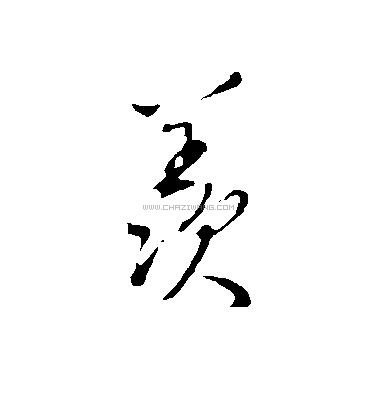 羨
WWW.CHAZIWANG.COM